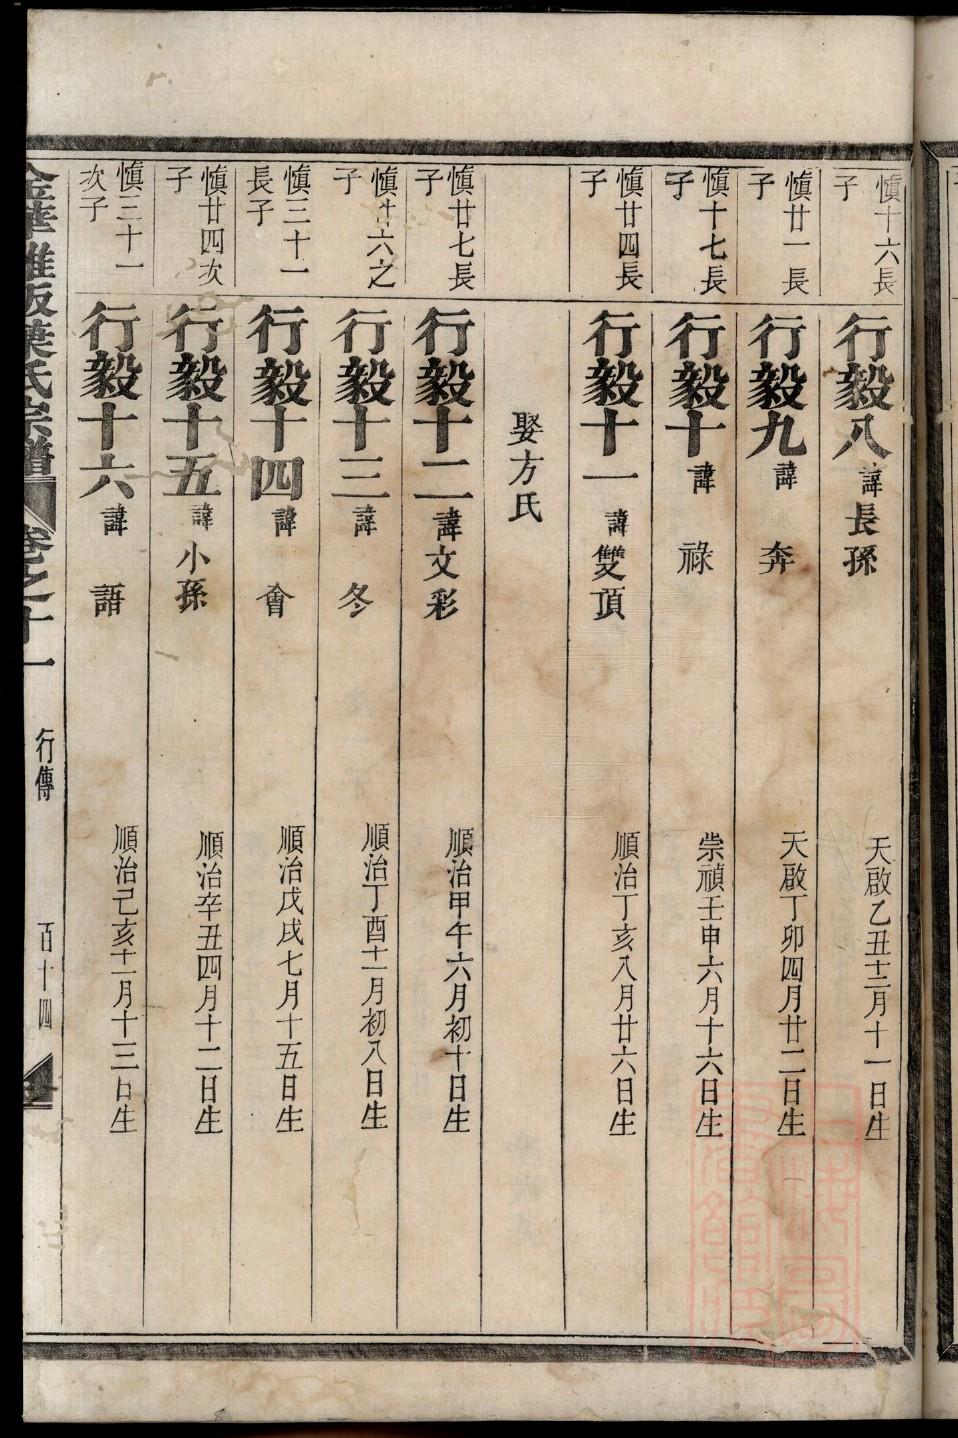 慎十六長子
行毅八 諱長孫 天啟乙丑十二月十一日生
慎廿一長子
行毅九 諱奔 天啟丁卯四月廿二日生
慎十七長子
行毅十 諱祿 崇禎壬申六月十六日生
慎廿四長子
行毅十一 諱雙頂 順治丁亥八月廿六日生
娶方氏
慎廿七長子
行毅十二 諱文彩 順治甲午六月初十日生
慎廿六之子
行毅十三 諱冬 順治丁酉十一月初八日生
慎三十一長子
行毅十四 諱會 順治戊戌七月十五日生
慎廿四次子
行毅十五 諱小孫 順治辛丑四月十二日生
慎三十一次子
行毅十六 諱語 順治己亥十一月十三日生
金華雅畈葉氏宗譜 卷之十一 行傳 百十四